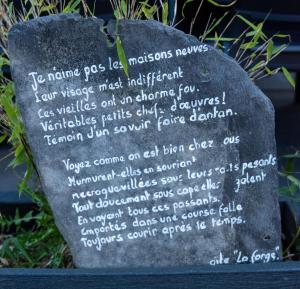 Je n'aime pas les maisons neuves
Leur visage m'est indifférent
Ces vieilles ont un charme fou.
Véritables petits chefs d'œuvres!
Témoin d'un savoir faire d'antan.
Voyez comme on est bien chez ous
Murmurent-elles en souriant
necroquevillées sous leurs toits pesants
Tout doucement sous cape elles jalent
En voyant tous ces passants.
Emportés dans une course folle
Toujours courir après le temps.
gîte "La forge".